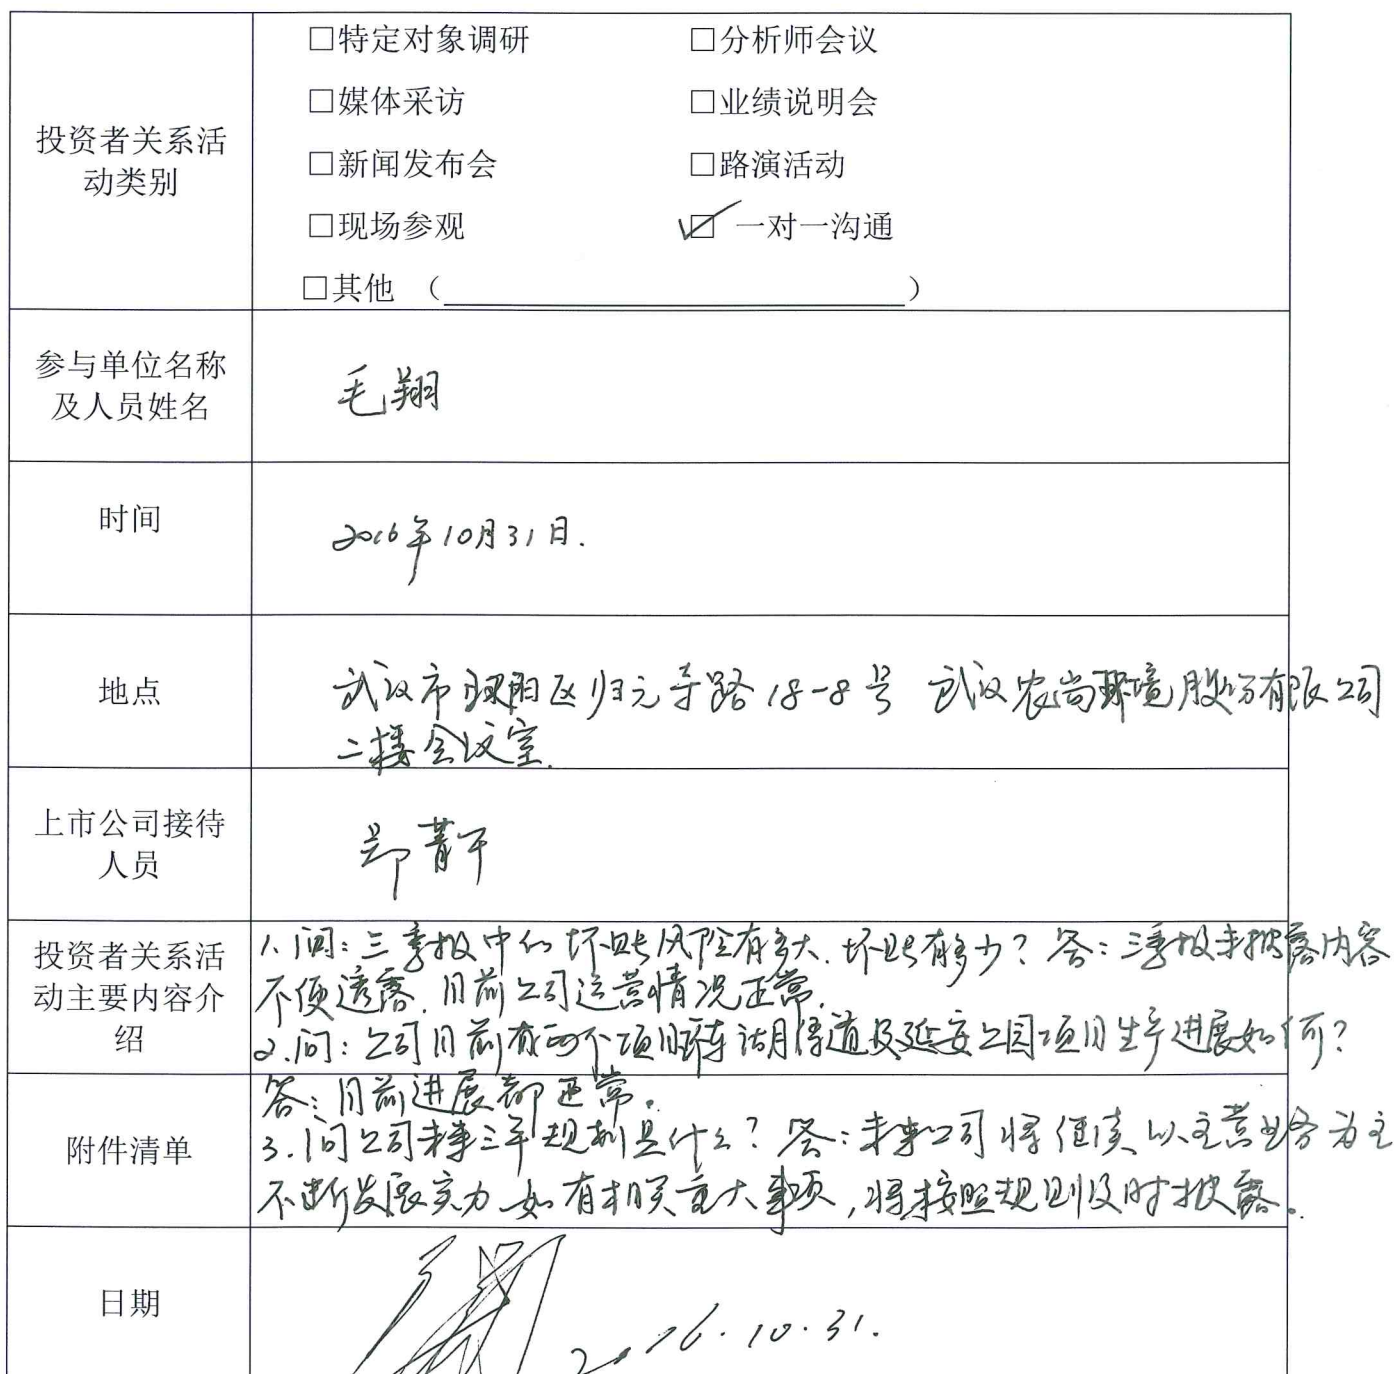 □特定对象调研 □分析师会议
□媒体采访 □业绩说明会
投资者关系活
动类别
□新闻发布会 □路演活动
□现场参观 ☑ 一对一沟通
□其他 （ ）
参与单位名称
及人员姓名
毛翔
时间
2016年10月31日.
地点
武汉市汉阳区归元寺路18-8号 武汉农尚环境股份有限公司
二楼会议室.
上市公司接待
人员
郑菁
投资者关系活
动主要内容介
绍
1.问：三季报中的坏账风险有多大.坏账有多少？答：三季报未披露内容
不便透露.目前公司运营情况正常.
2.问：公司目前有两个项目环东湖绿道及延安公园项目生产进展如何？
答：目前进展都正常。
附件清单
3.问公司未来三年规划是什么？答：未来公司将继续以主营业务为主
不断发展实力.如有相关重大事项，将按照规则及时披露。
日期
2016.10.31.